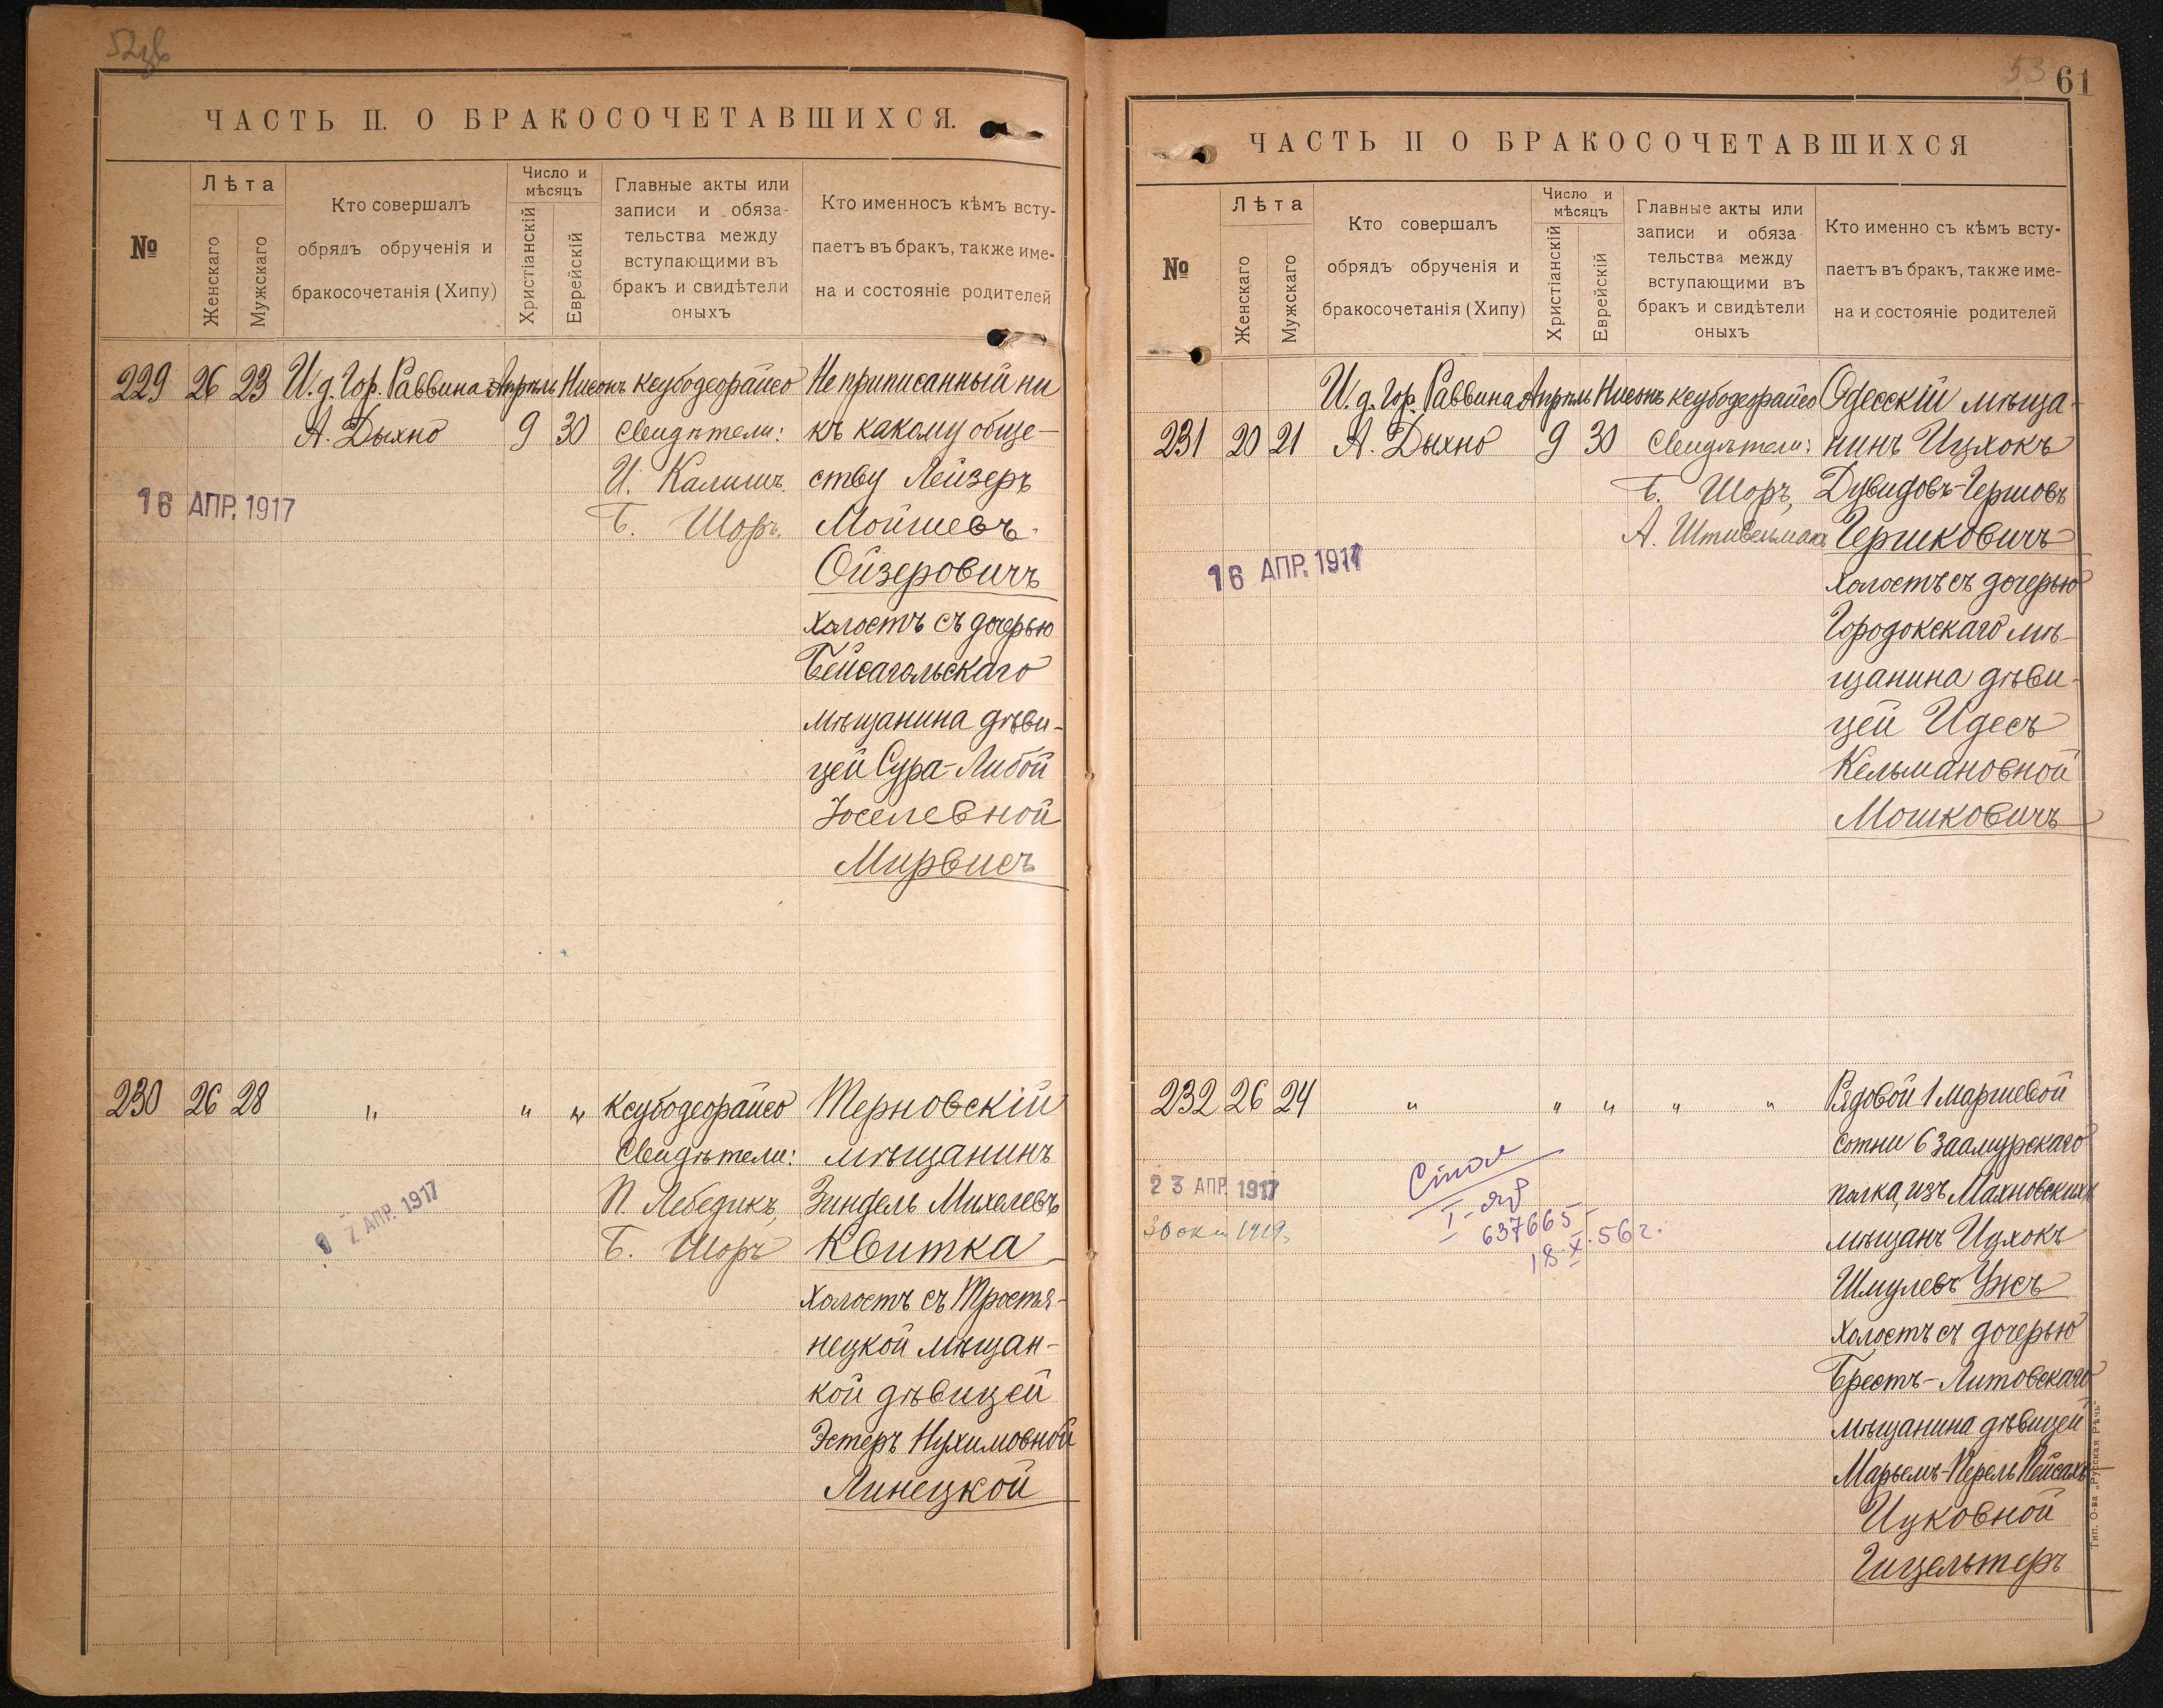 ЧАСТЬ II. О БРАКОСОЧЕТАВШИХСЯ.
№
Лѣта
Женскаго
Мужскаго
Кто совершалъ
обрядъ обрученія и
бракосочетанія (Хипу)
Число и
мѣсяцъ
Христіанскій
Еврейскій
Главные акты или
записи и обяза-
тельства между
вступающими въ
бракъ и свидѣтели
оныхъ
Кто именносъ кѣмъ всту-
паетъ въ бракъ, также име-
на и состояніе родителей
229 26 23 И. д. Гор. Раввина Апрѣль Нисонъ Ксубодеорайсо Не приписанный ни
А. Дыхно 9 30 Свидѣтели: къ какому обще-
И. Калишъ. ству Лейзеръ
16 АПР. 1917
Б. Шоръ. Мойшевъ-
Ойзеровичъ
холостъ съ дочерью
Бейсагольскаго
мѣщанина дѣви-
цей Сура-Либой
Іоселевной
Мирвисъ
230 26 28 " " " Ксубодеорайсо Терновскій
Свидѣтели: мѣщанинъ
П. Лебедикъ, Зиндель Михелевъ
7 АПР. 1917
Б. Шоръ Квитка
холостъ съ Тростя-
нецкой мѣщан-
кой дѣвицей
Эстеръ Нухимовной
Линецкой
53 61
ЧАСТЬ II О БРАКОСОЧЕТАВШИХСЯ
№
Лѣта
Женскаго
Мужскаго
Кто совершалъ
обрядъ обрученія и
бракосочетанія (Хипу)
Число и
мѣсяцъ
Христіанскій
Еврейскій
Главные акты или
записи и обяза-
тельства между
вступающими въ
бракъ и свидѣтели
оныхъ
Кто именно съ кѣмъ всту-
паетъ въ бракъ, также име-
на и состояніе родителей
И. д. Гор. Раввина Апрѣль Нисонъ Ксубодеорайсо Одесскій мѣща-
231 20 21 А. Дыхно 9 30 Свидѣтели: нинъ Ицхокъ
Б. Шоръ, Дувидовъ-Гершовъ
А. Штивельманъ Гершковичъ
16 АПР. 1917
холостъ съ дочерью
Городокскаго мѣ-
щанина дѣви-
цей Идесъ
Кельмановной
Мошковичъ
232 26 24 " " " " " Рядовой 1 маршевой
сотни 6 Заамурскаго
23 АПР. 1917
полка, изъ Махновскихъ
637665
18.X.56г.
мѣщанъ Ицхокъ
Шмулевъ Ужъ
холостъ съ дочерью
Брестъ-Литовскаго
мѣщанина дѣвицей
Марьемъ-Перель Пейсахъ-
Ицковной
Гицельтеръ
Тип. О-ва „Русская Рѣчь“